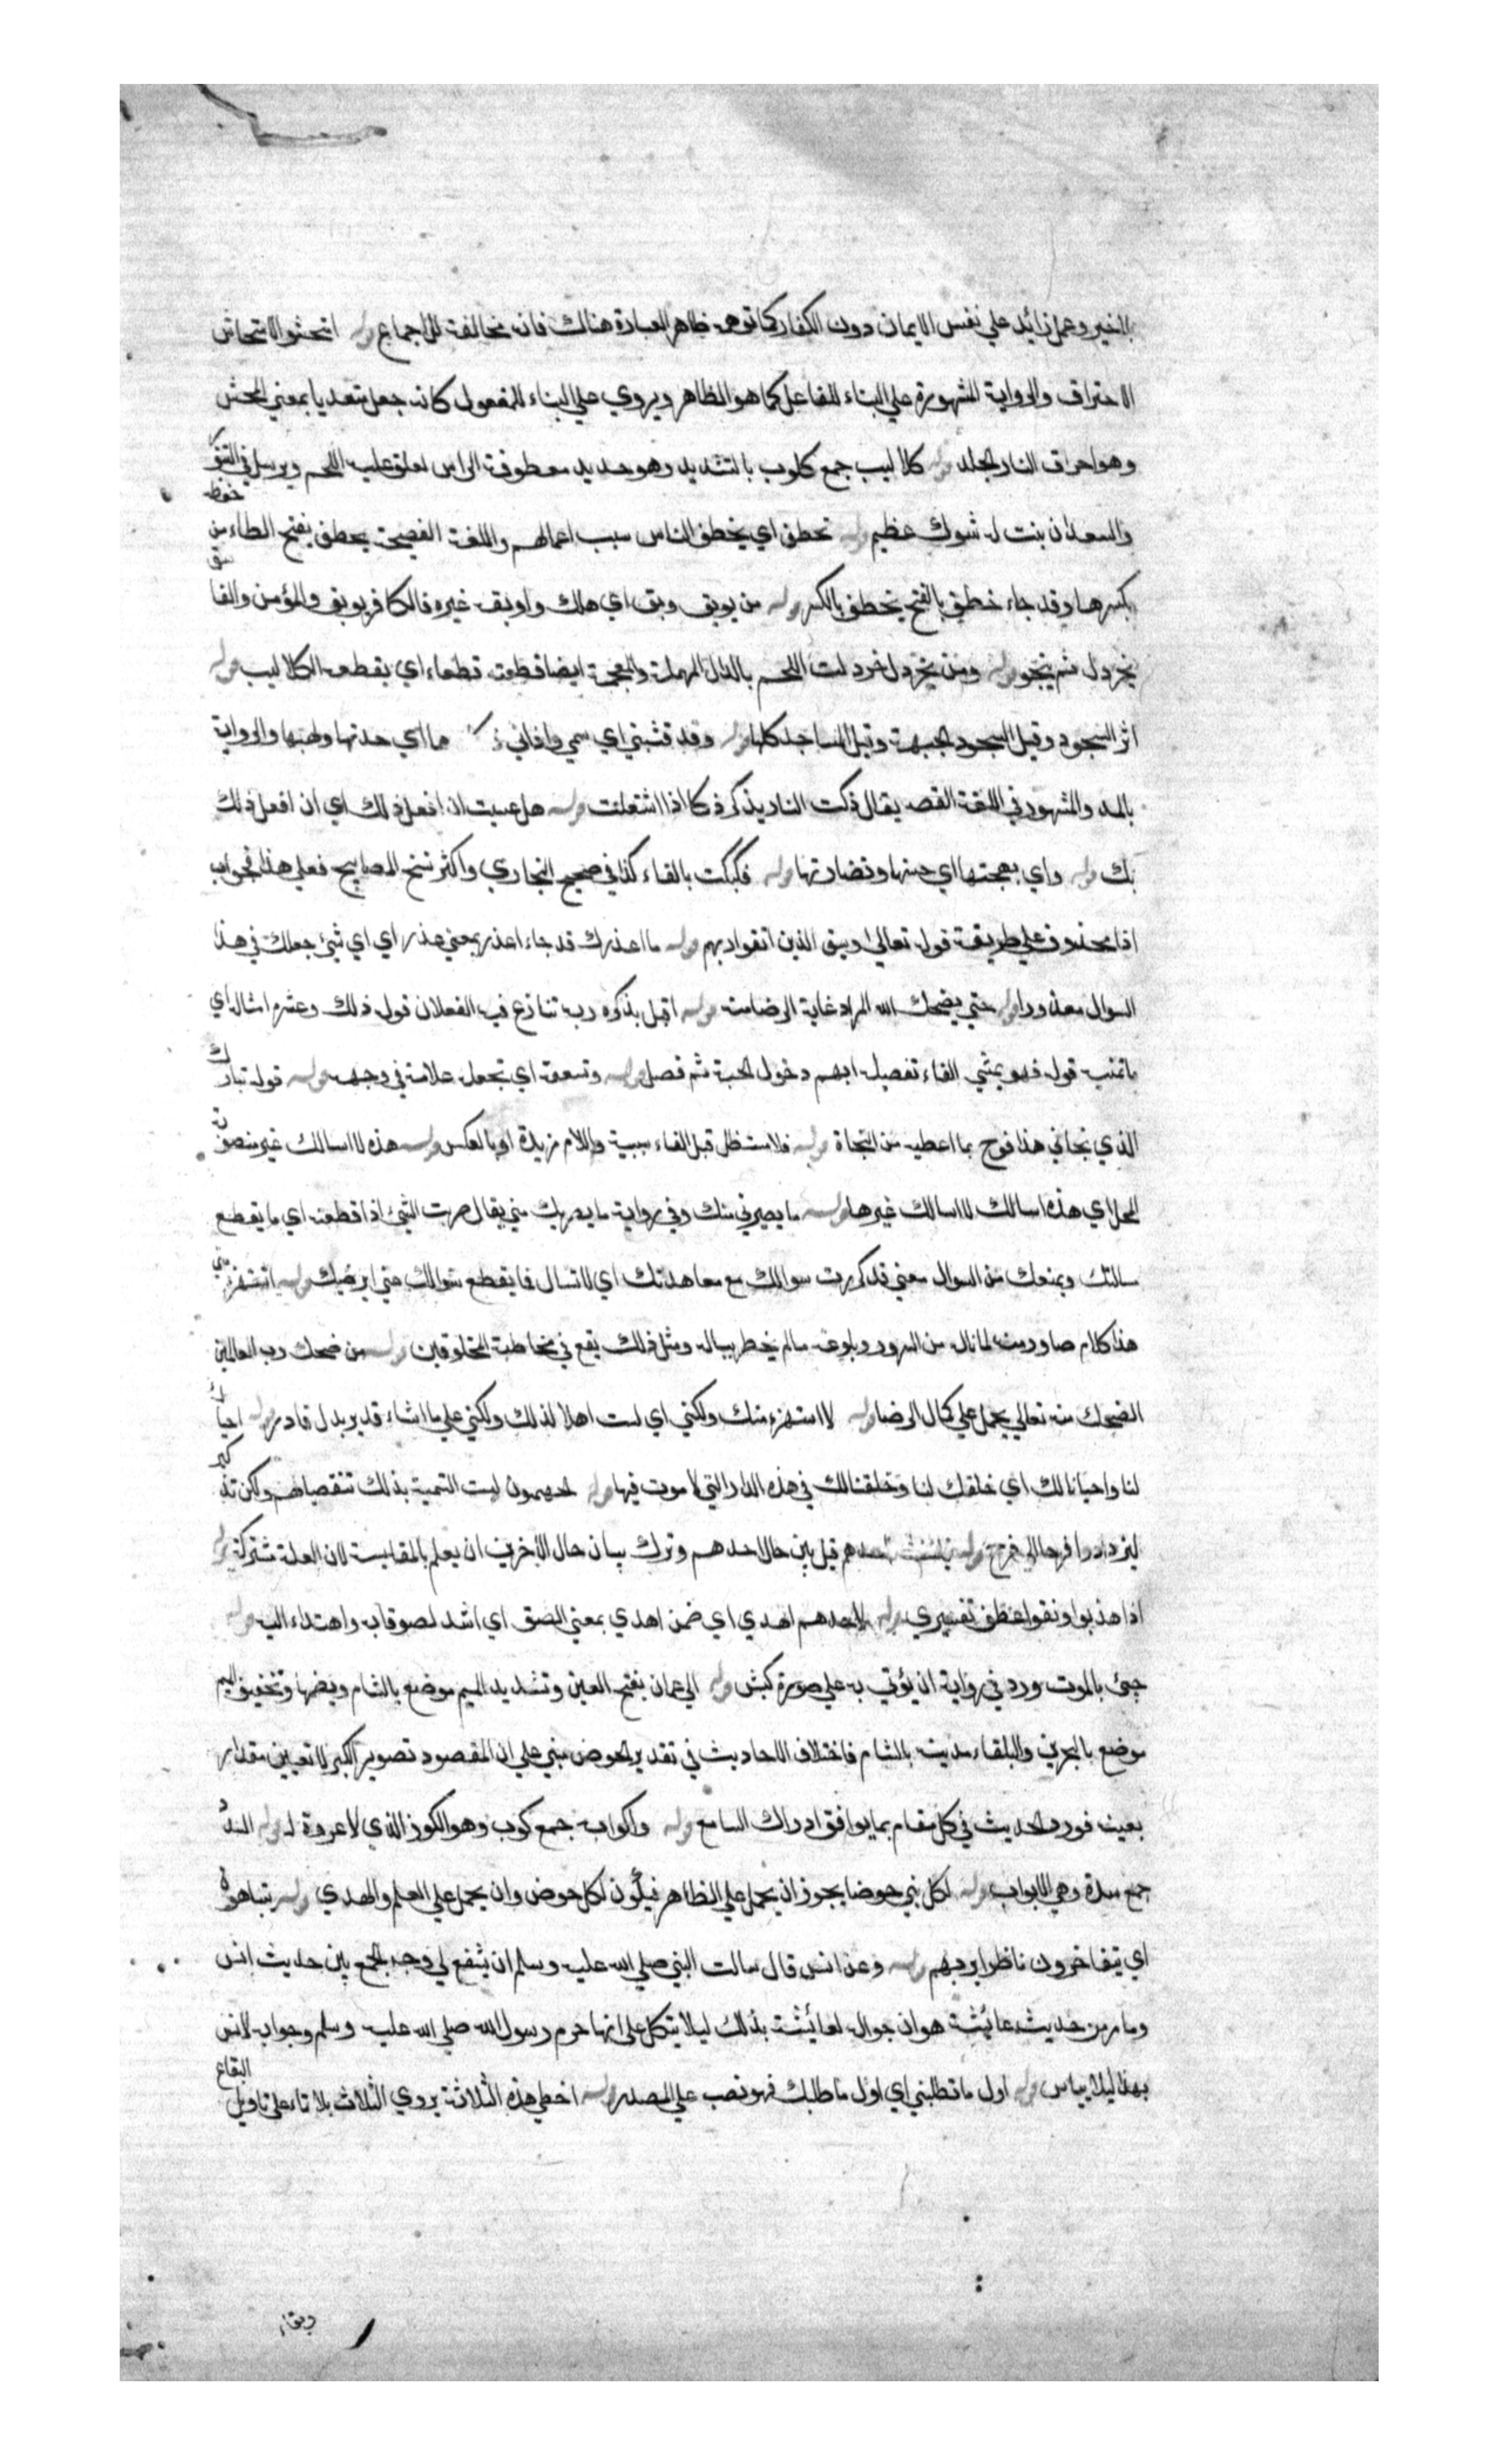 بالخير وعمل زائد علي نفس الايمان دون الكفار كما توهمه ظاهر العبارة هناك فانه مخالفة للاجماع قوله امتحشوا الامتحاش
الاحتراق والرواية المشهورة علي البناء للفاعل كما هو الظاهر ويروي علي البناء للمفعول كانه جعل متعديا بمعني المحش
وهو احراق النار الجلد قوله كلاليب جمع كلوب بالتشديد وهو حديد معطوفة الراس تعلق عليه اللحم ويرسل في التنور
والسعدان بنت له شوك عظيم قوله تخطف اي يخطف الناس سبب اعمالهم واللغة الفصيحة يخطف بفتح الطاء من خطف
بكسرها وقد جاء خطف بالفتح يخطف بالكسر قوله من يوبق وبق اي هلك واوبقه غيره فالكافر يوبق والمؤمن والفاسق
يخردل ثم ينجو قوله ومن يخردل خردلت اللحم بالدال المهملة والمعجمة ايضا قطعته قطعاء اي يقطعه الكلاليب قوله
اثر السجود وقيل السجود الجبهة وقيل المساجد كلها قوله وقد قشبني اي سمي واذاني ذكاءها اي حدتها ولهبها والرواية
بالمد والمشهور في اللغة القصر يقال ذكت النار يذكر ذكا اذا اشتعلت قوله هل عسيت ان افعل ذلك اي ان افعل ذلك
بك قوله واي بهجتها اي حسنها ونضارتها قوله فكبكت بالفاء كذا في صحيح البخاري واكثر نسخ المصابيح فعلي هذا فجواب
اذا محذوف علي طريقة قوله تعالي وسيق الذين اتقوا ربهم قوله ما اعذرك قد جاء اعذر بمعني عذر اي اي شيئ جعلك في هذا
السوال معذورا قوله حتي يضحك الله المراد غاية الرضا منه قوله اقبل يذكره ربه تنازع فيه الفعلان قوله ذلك وعشرة امثاله اي
ماتمنيت قوله فهو يمشي الفاء تفصيل ابهم دخول الجنة ثم فصل قوله وتسعفه اي تجعل علامة في وجهه قوله قوله تبارك
الذي نجاني هذا فرح بما اعطيه من النجاة قوله فلاستظل قبل الفاء سببية واللام مزيدة او بالعكس قوله هذه لا اسالك غير منصوب
المحل اي هذه اسالك لا اسالك غيرها قوله ما يصريني منك وفي رواية ما يصريك مني يقال صريت الشيئ اذا قطعته اي ما يقطع
سالتك ويمنعك من السوال معني قد كررت سوالك مع معاهدتك اي لا تسال فما يقطع سوالك حتي ارضيك قوله اتستهزئ مني
هذا كلام صادر منه لما ناله من السرور وبلوغه ما لم يخطر بباله ومثل ذلك يقع في مخاطبة المخلوقين قوله من ضحك رب العالمين
الضحك منه تعالي يحمل علي كمال الرضا قوله لا استهزئ منك ولكني اي لست اهلا لذلك ولكني علي ما اشاء قدير بدل قادر قوله احياك
لنا واحيانا لك اي خلقك لنا وخلقنا لك في هذه الدار التي لا موت فيها قوله الجهنميون ليست التسمية بذلك تنقيصا لهم ولكن تذكير
ليزدادوا فرحا الي فرح قوله احدهم قيل بين حال احدهم وترك بيان حال الآخرين ان يعلم بالمقايسة لان العلة مشتركة قوله
اذا هذبوا ونقوا عطف تفسيري قوله لاحدهم اهدي اي ضمن اهدي بمعني الصق اي اشد لصوقا به واهتداء اليه قوله
جيئ بالموت ورد في رواية ان يؤتي به علي صورة كبش قوله الي عمان بفتح العين وتشديد الميم موضع بالشام وبضمها وتخفيف الميم
موضع بالبحرين والبلقاء مدينة بالشام فاختلاف الاحاديث في تقدير الحوض مبني علي ان المقصود تصوير الكبر لا تعيين مقدار
بعينه فورد الحديث في كل مقام بما يوافق ادراك السامع قوله واكوابه جمع كوب وهو الكوز الذي لا عروة له قوله السدد
جمع سدة وهي الابواب قوله لكل نبي حوضا يجوز ان يحمل علي الظاهر فيكون لكل حوض وان يحمل علي العلم والهدي قوله يتباهون
اي يتفاخرون ناظرا يرجهم قوله وعن انس قال سالت النبي صلي الله عليه وسلم ان يشفع لي وجه الجمع بين حديث انس
وما مر من حديث عائشة هو ان جوابه لعائشة بذلك ليلا يتكل علي انها حرم رسول الله صلي الله عليه وسلم وجوابه لانس
بهذا ليلا يياس قوله اول ما تطلبني اي اول ما طلبك فهو نصب علي المصدر قوله اخطي هذه الثلاثة يروي الثلاث بلا تاء علي تاويل البقاع